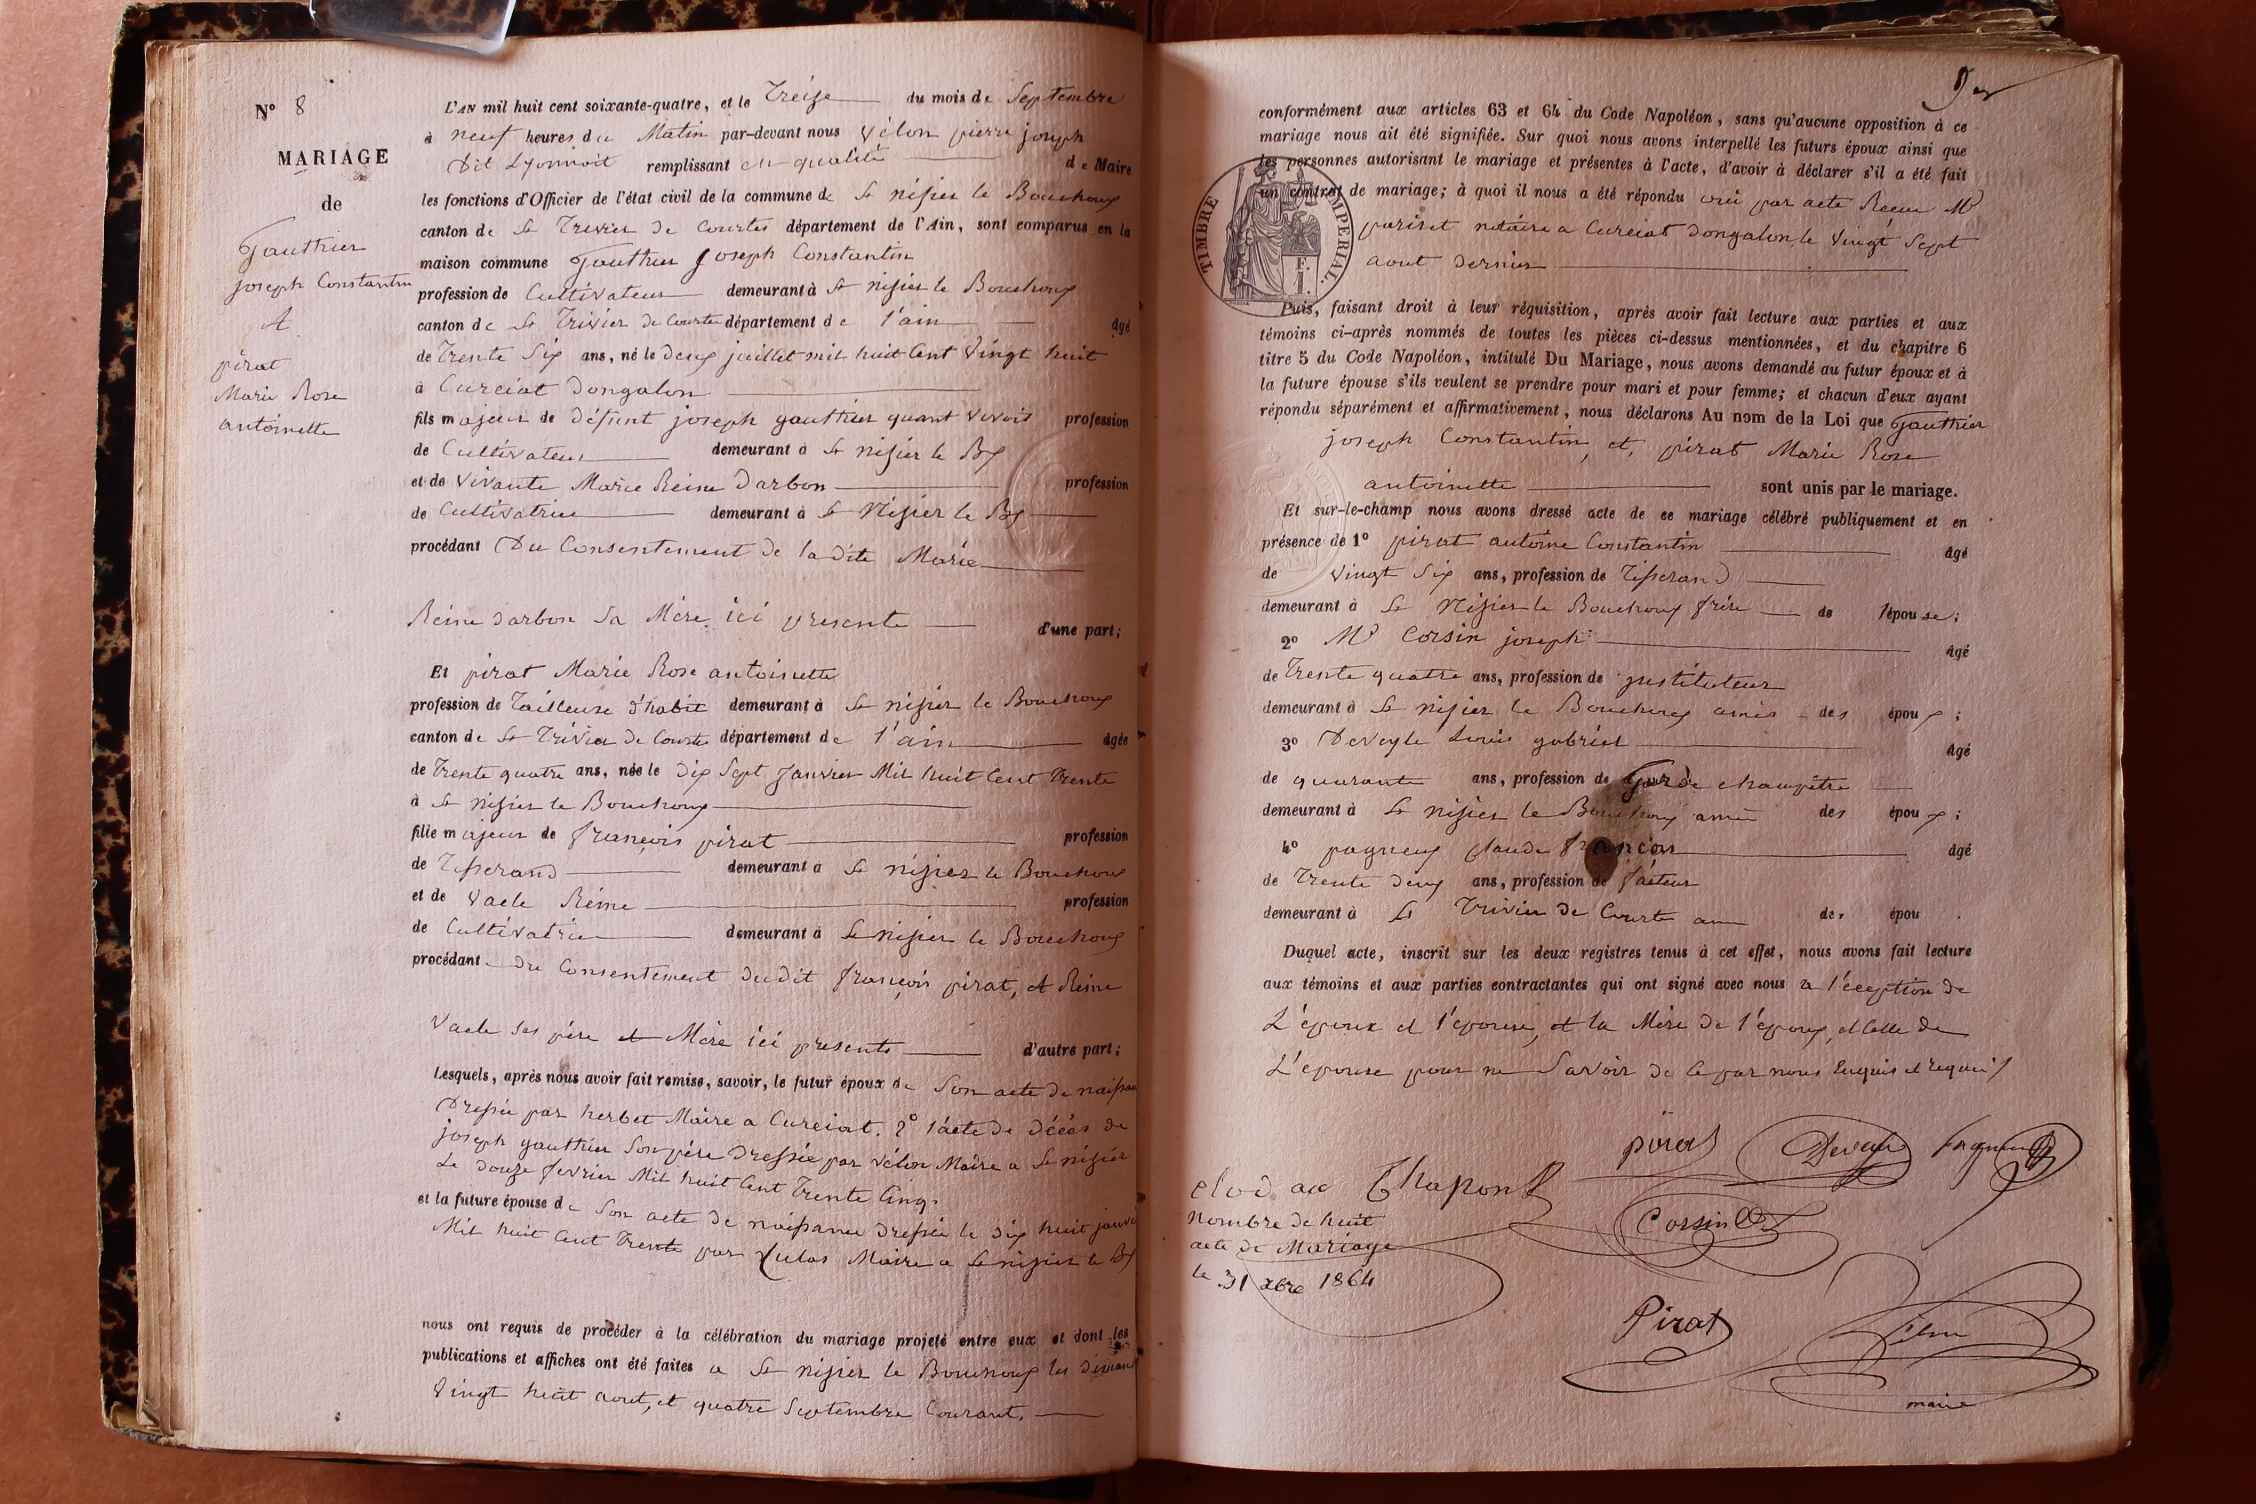 N° 8
MARIAGE
de
Gauthier
joseph Constantin
Et
pirat
Marie Rose
antoinette
L'AN mil huit cent soixante-quatre, et le Treize du mois de Septembre
à neuf heures du Matin par-devant nous Vélon pierre joseph
Dit Lyonnait remplissant en qualité de Maire
les fonctions d'Officier de l'état civil de la commune de St nisier le Bouchoux
canton de St Trivier de Courtes département de l'Ain, sont comparus en la
maison commune Gauthier Joseph Constantin
profession de Cultivateur demeurant à St nisier le Bouchoux
canton de St Trivier de Courte département de l'ain âgé
de Trente Six ans, né le Deux juillet mil huit Cent Vingt huit
à Curciat Dongalon
fils majeur de Défunt joseph gauthier quant vivoit profession
de Cultivateur demeurant à St nisier le Bx
et de Vivante Marie Reine Darbon profession
de Cultivatrice demeurant à St Nisier le Bx
procédant Du Consentement de la dite Marie
Reine Darbon Sa Mère ici presente d'une part;
Et pirat Marie Rose antoinette
profession de Tailleuse d'habit demeurant à St nisier le Bouchoux
canton de St Trivier de Courtes département de l'ain âgée
de Trente quatre ans, née le Dix Sept Janvier Mil huit Cent Trente
à St nisier le Bouchoux
fille majeur de françois pirat profession
de Tisserand demeurant à St nisier le Bouchoux
et de Vacle Reine profession
de Cultivatrice demeurant à St nisier le Bouchoux
procédant du Consentement dudit françois pirat, et Reine
Vacle Ses père et Mère ici presents d'autre part;
Lesquels, après nous avoir fait remise, savoir, le futur époux de Son acte de naissan
Dressée par herbet Maire a Curciat. 2° l'acte de Décès de
joseph gauthier Son père Dressée par Vélon Maire a St nisier
Le douze fevrier Mil huit Cent Trente Cinq.
et la future épouse de Son acte de naissance Dressée le dix huit janvi
Mil huit Cent Trente par Maire a St nisier le Bx
nous ont requis de procéder à la célébration du mariage projeté entre eux et dont les
publications et affiches ont été faites a St nisier le Bouchoux les diman
Vingt huit aout, et quatre Septembre Courant.
conformément aux articles 63 et 64 du Code Napoléon, sans qu'aucune opposition à ce
mariage nous ait été signifiée. Sur quoi nous avons interpellé les futurs époux ainsi que
les personnes autorisant le mariage et présentes à l'acte, d'avoir à déclarer s'il a été fait
un contrat de mariage; à quoi il nous a été répondu oui par acte Recu Me
pariset notaire a Curciat Dongalon, le Vingt Sept
aout Dernier
TIMBRE IMPERIAL.
E.
I.
Puis, faisant droit à leur réquisition, après avoir fait lecture aux parties et aux
témoins ci-après nommés de toutes les pièces ci-dessus mentionnées, et du chapitre 6
titre 5 du Code Napoléon, intitulé Du Mariage, nous avons demandé au futur époux et à
la future épouse s'ils veulent se prendre pour mari et pour femme; et chacun d'eux ayant
répondu séparément et affirmativement, nous déclarons Au nom de la Loi que Gauthier
joseph Constantin, et, pirat Marie Rose
antoinette sont unis par le mariage.
Et sur-le-champ nous avons dressé acte de ce mariage célébré publiquement et en
présence de 1° pirat antoine Constantin âgé
de Vingt Six ans, profession de Tisserand
demeurant à St Nisier le Bouchoux frère de l'épouse;
2° Mr Corsin joseph âgé
de Trente quatre ans, profession de instituteur
demeurant à St nisier le Bouchoux amis des époux;
3° Deveyle Louis gabriel âgé
de quarante ans, profession de Garde champêtre
demeurant à St nisier le Bouchoux ami des époux;
4° pagneux Claude françois âgé
de Trente Deux ans, profession de facteur
demeurant à St Trivier de Courte ami des épou
Duquel acte, inscrit sur les deux registres tenus à cet effet, nous avons fait lecture
aux témoins et aux parties contractantes qui ont signé avec nous a l'éception de
L'époux et l'épouse, et la Mère de l'époux, et Celle de
L'épouse pour ne Savoir de Ce par nous Enquis et requis
pirat Deveyle Pagneux
Clod au Chapont
Nombre de huit
acte de Mariage
le 31 xbre 1864
Corsin
Pirat
Vélon
maire